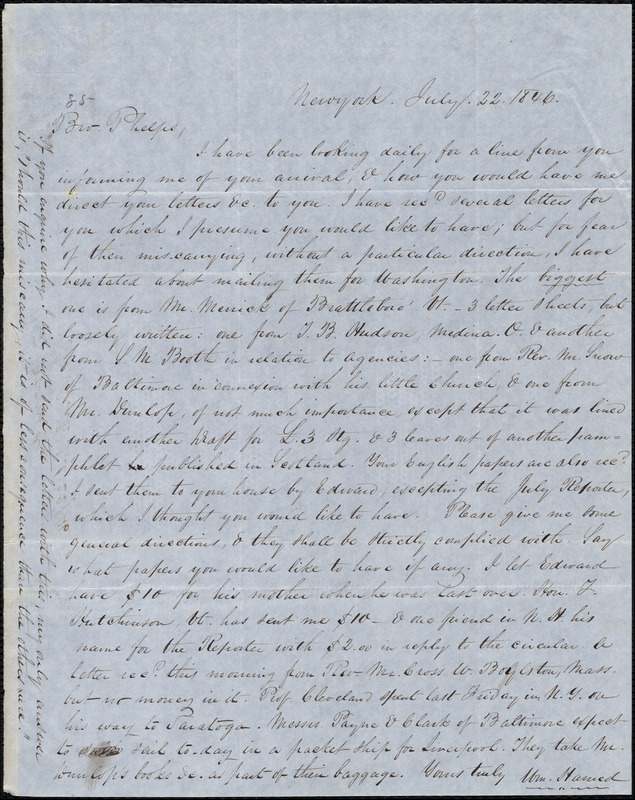 85
New York. July. 22. 1846.
Bro Phelps,
I have been looking daily for a line from you
informing me of your arrival, & how you would have me
direct your letters &c. to you. I have recd several letters for
you which I presume you would like to have; but for fear
of their miscarrying, without a particular direction, I have
hesitated about mailing them for Washington. The biggest
one is from Mr. Merrick of Brattleboro' Vt. - 3 letter sheets, but
loosely written: one from T. B. Hudson, Medina. O. & another
from S M. Booth in relation to agencies: - one from Rev. Mr. Snow
of Baltimore in connexion with his little Church, & one from
Mr. Dunlop, of not much importance, except that it was lined
with another Draft for L. 3 Stg. & 3 leaves out of another pam=
phlet published in Scotland. Your English papers are also recd.
I sent them to your house by Edward, excepting the July Reporter,
which I thought you would like to have. Please give me some
general directions, & they shall be strictly complied with. Say
what papers you would like to have if any. I let Edward
have $10 for his mother when he was last over. Hon. T.
Hutchinson Vt. has sent me $10 - & one friend in N. H. his
name for the Reporter with $2.00 in reply to the circular. A
letter recd. this morning from Rev- Mr. Cross W. Boylston, Mass.
but no money in it. Prof. Cleveland spent last Friday in N. Y. on
his way to Saratoga. Messrs Payne & Clark of Baltimore expect
to sail to-day in a packet ship for Liverpool. They take Mr.
Dunlop's books &c. as part of their baggage. Yours truly Wm. Harned
If you enquire why I did not send the letters with this, my only answer
is, "should this miscarry, it is of less consequence than the others are."